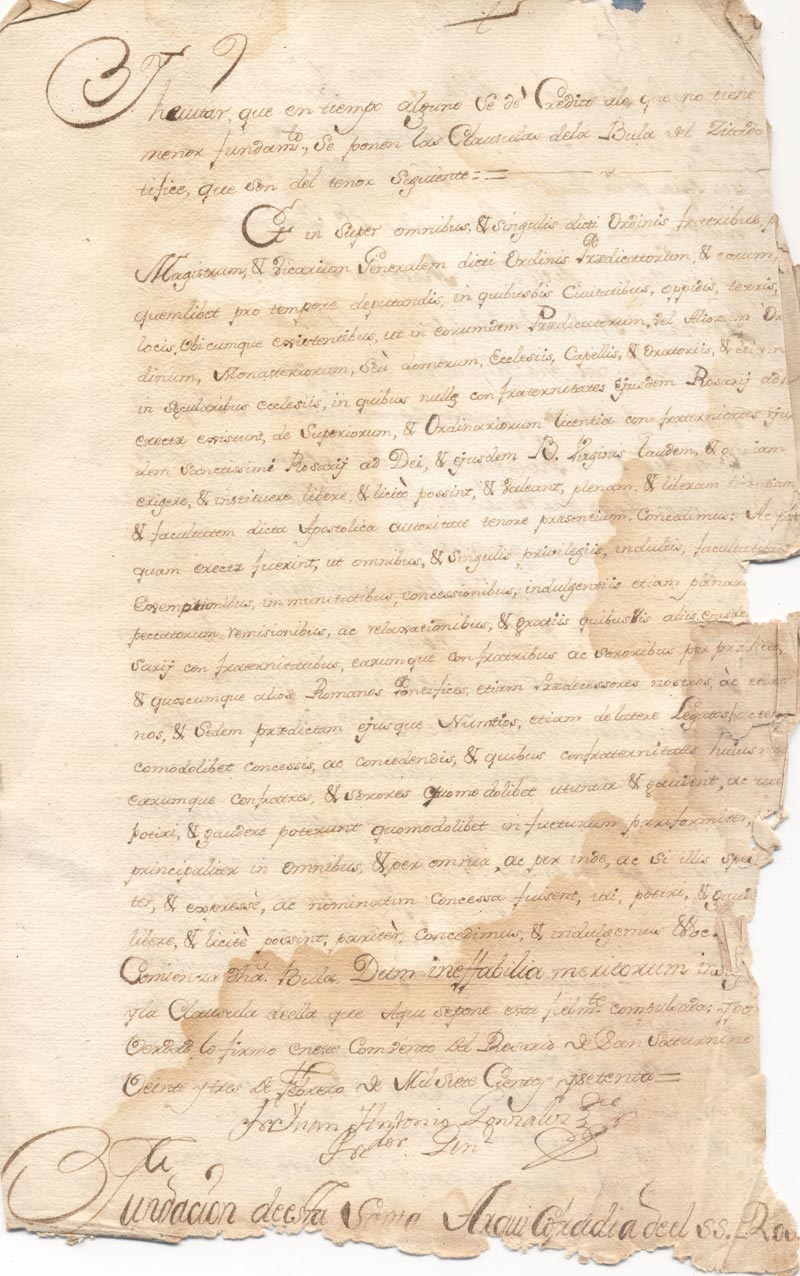 hevitar, que en tiempo alguno Se dè Credito ale que no tiene
menor fundamto., Sè ponen las Clausulas dela Bula del Zitado
tifice, que son del tenor Siguiente==
Et in Super omnibus, & Singulis dicti Ordinis fratribus,
Magistrum, & Vicarium Generalem dicti Ordinis Prædicatorum, & eorum,
quemlibet pro tempore deputandis, in quibusbis Civitatibus, oppidis, terris,
locis, Ubicumque existentibus, ut in eorumdem Prædicatorum, vel Aliorum Or
dinum, Monasteriorum, Seù domorum, Ecclesiis, Capellis, & Oratoriis, &
in Sæcularibus ecclesiis, in quibus nullæ confraternitates ejusdem Rosarij
erectæ existunt, de Superiorum, & Ordinariorum licentia confraternitates eju
dem Sanctissimi Rosarij ad Dei, & ejusdem B. Virginis laudem, & gloriam
erigere, & instituere liberè, & licitè possint, & valeant, plenam, & liberam
& facultatem dicta Apostolica autoritate tenore præsentium, Concedimus: Ac
quam erectæ fuerint, ut omnibus, & Singulis privilegiis, indultis, facultatibus
Exemptionibus, immunitatibus, concessionibus, indulgentiis etiam plenar
peccatorum remisionibus, ac relaxationibus, & gratiis quibusvis aliis
sarij confraternitatibus, earumque confratribus ac sororibus per prædict
& quoscumque alios Romanos Pontifices, etiam Prædecessores nostros, àc etiam
nos, & Sedem prædictam ejusque Nuntios, etiam de latere Legatos
comodolibet concessis, ac concedendis, & quibus confraternitatis huius
earumque confratres, & sorores quomodolibet utuntur & gaudent, ac uti
potiri, & gaudere poterunt quomodolibet in fucturum pariformiter,
principaliter in omnibus, & per omnia, ac per inde, ac si illis spe
ter, & expressè, ac nominatim Concessa fuisent, uti, potiri, & gau
liberè, & licitè possint, paritèr, Concedimus, & indulgemus &c.
Comienza dha. Bula, Dum ineffabilia meritorum
yla Clausula della que Aqui sepone esta fielmte. compulsada; ypo
Verdad lo firmo eneste Combento del Rosario de San Saturnino
Veinte ytres de Febrero de Mil Siete Cientos ysetenta=
Fr. Juan Antonio Gonzalez
Fundacion deesta Santa Arqui Cofradia deel SS. Ro